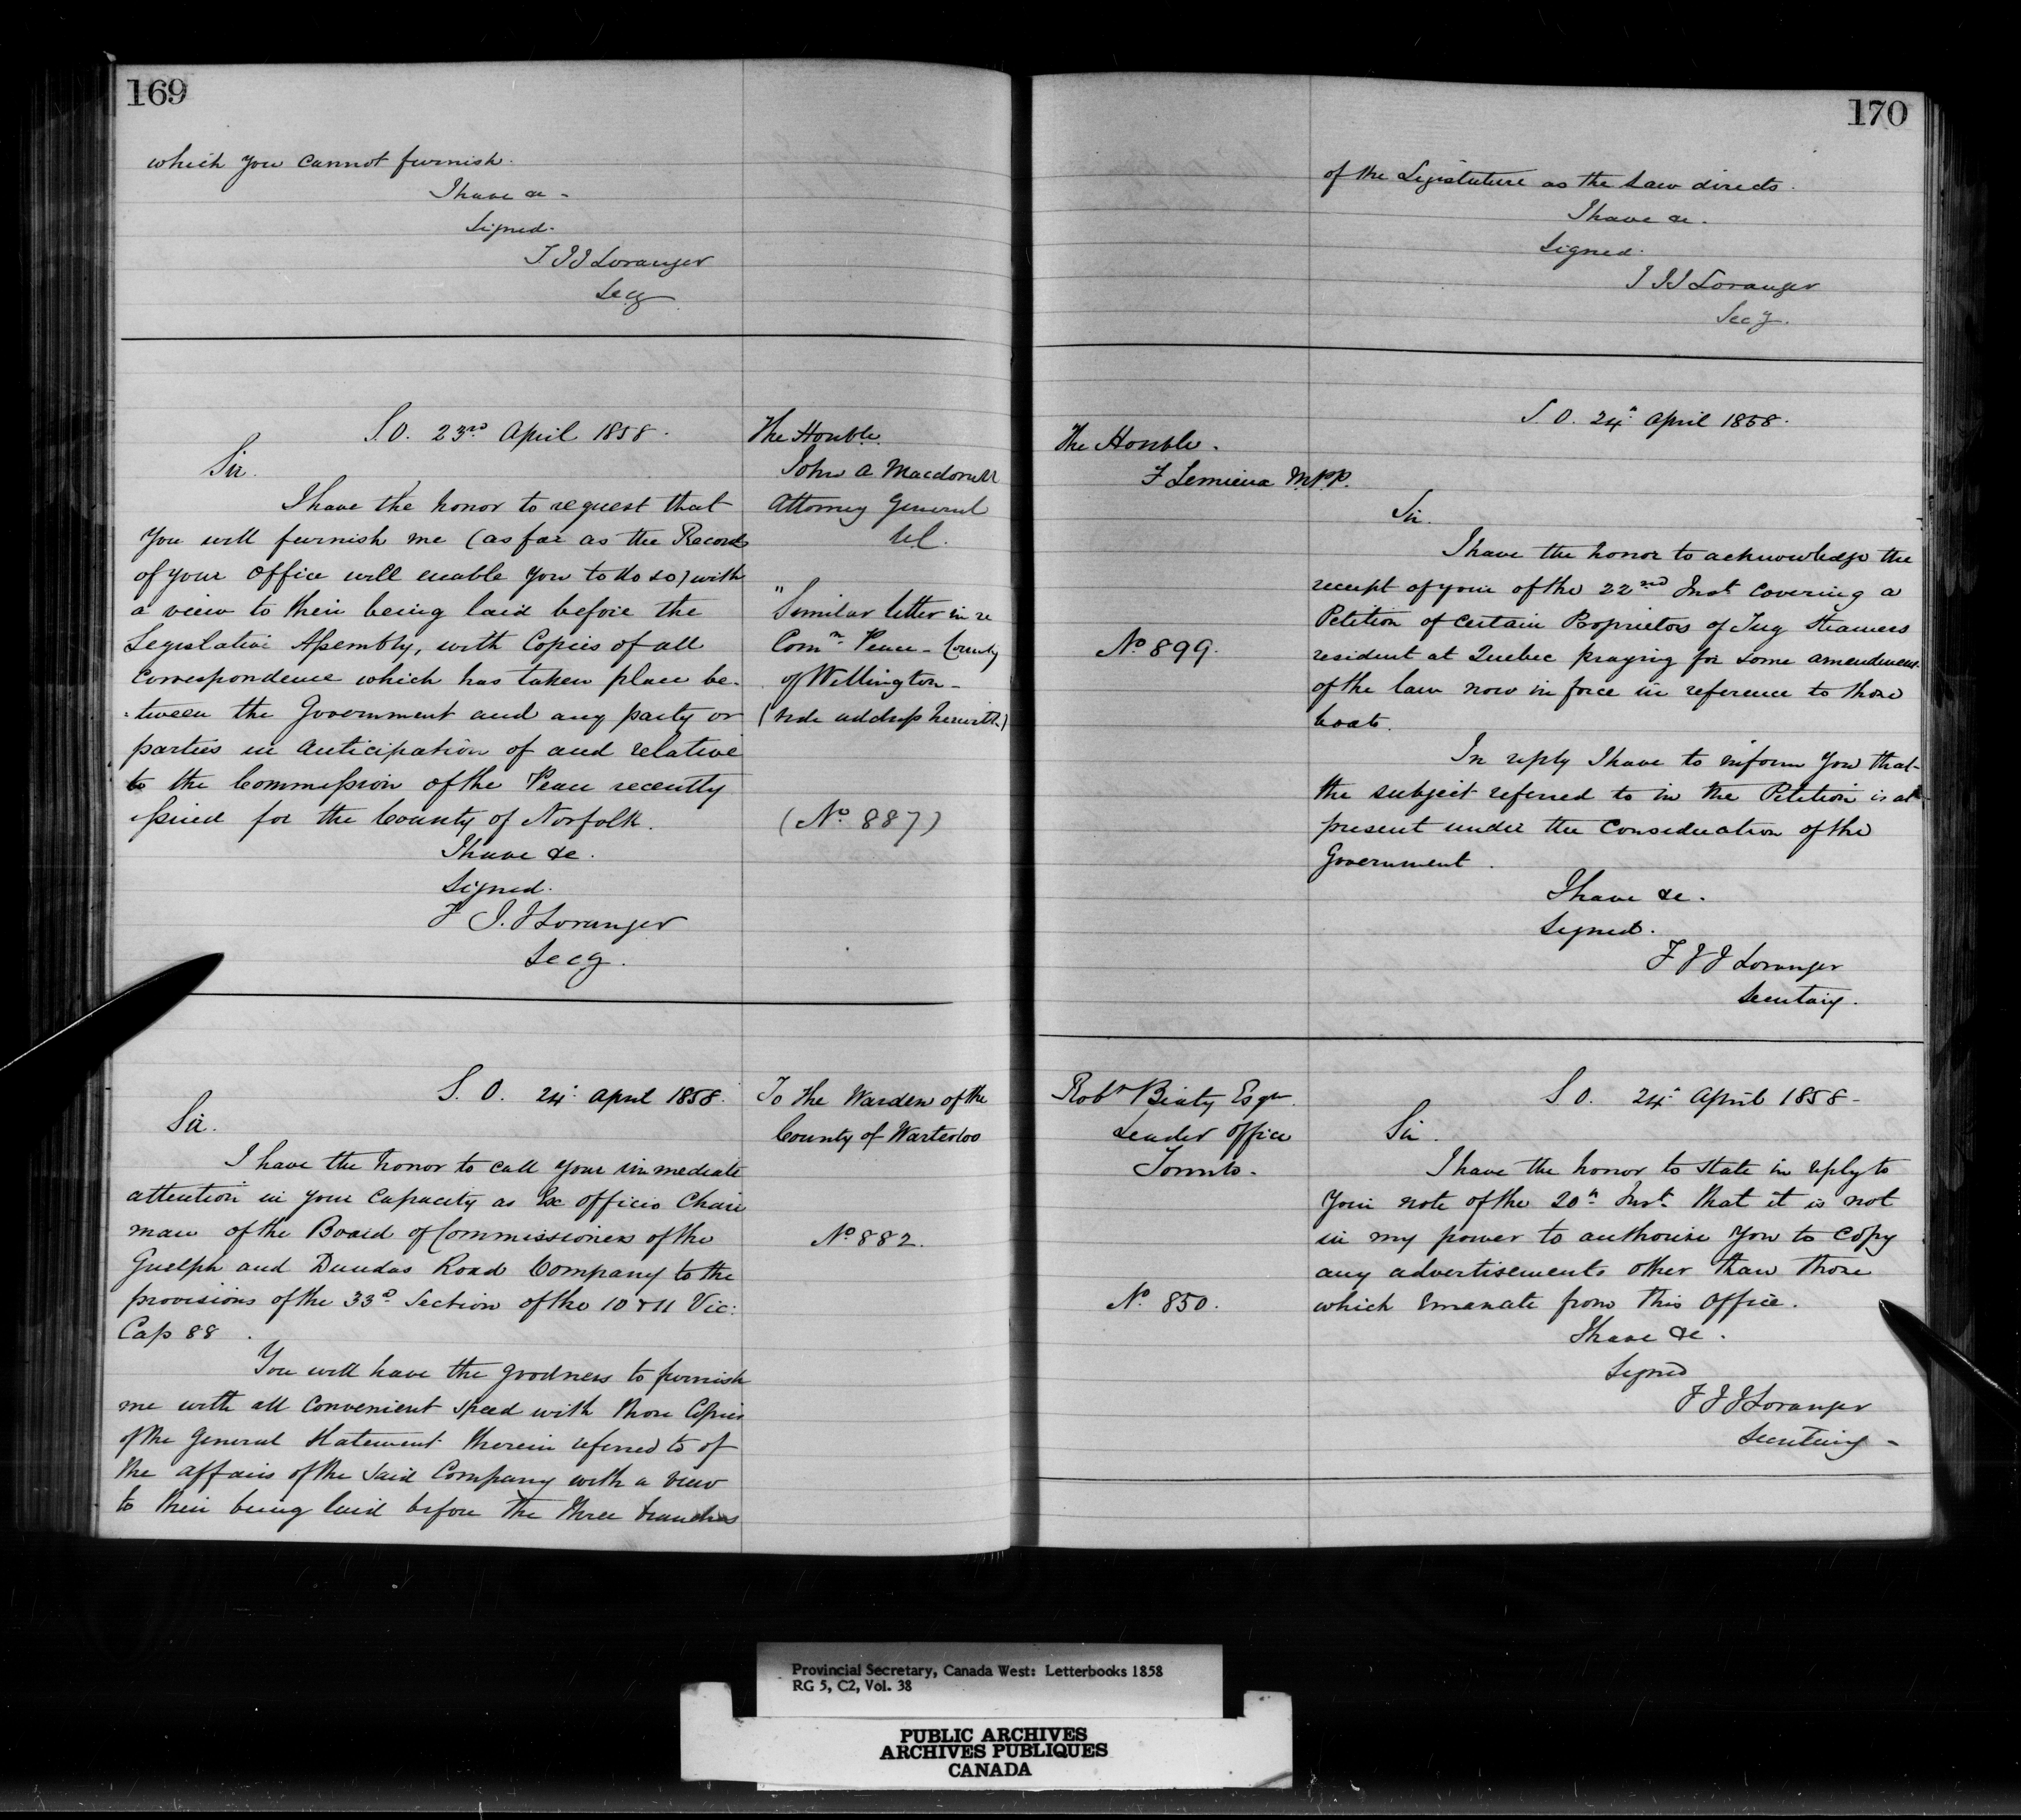 169
which you cannot furnish.
I have &c -
Signed.
T J J Loranger
Secy

S.O. 23rd April 1858.
Sir.
I have the honor to request that
you will furnish me (as far as the Records
of your office will enable you to do so) with
a view to their being laid before the
Legislative Assembly, with Copies of all
correspondence which has taken place be-
-tween the Government and any party or
parties in anticipation of and relative
to the Commission of the Peace recently
issued for the County of Norfolk.
I have &c.
Signed.
T J. J Loranger
Secy.

The Honble.
John A Macdonell
Attorney General
U.C.
" Similar letter in re
Comn Peace - County
of Wellington -
(vide address herewith)
(No 887)

S. O. 24th April 1858.
Sir.
I have the honor to call your immediate
attention in your capacity as Ex officio Chair
man of the Board of Commissioners of the
Guelph and Dundas Road Company to the
provisions of the 33d Section of the 10 & 11 Vic:
Cap 88.
You will have the goodness to furnish
me with all convenient speed with those Copies
of the General Statement therein referred to of
the affairs of the said Company with a view
to their being laid before the three branches

To the Warden of the
County of Warterloo
No 882.

170
of the Legislature as the Law directs.
I have &c.
Signed.
T J J Loranger
Secy.

The Honble.
F Lemieux M.P.P.
No 899.

S. O. 24th April 1858.
Sir.
I have the honor to acknowledge the
receipt of your of the 22nd Inst covering a
Petition of certain Proprietors of Tug Steamers
resident at Quebec praying for some amendment
of the law now in force in reference to those
boats.
In reply I have to inform you that
the subject referred to in the Petition is at
present under the consideration of the
Government.
I have &c.
Signed.
T J J Loranger
Secretary.

Robt Beaty Esqr
Leader office
Toronto -
No. 850.

S O. 24th April 1858 -
Sir.
I have the honor to state in reply to
your note of the 20th Inst. that it is not
in my power to authorise you to copy
any advertisements other than those
which emanate from this office.
I have &c.
Signed
T J J Loranger
Secretary -

Provincial Secretary, Canada West: Letterbooks 1858
RG 5, C2, Vol. 38
PUBLIC ARCHIVES
ARCHIVES PUBLIQUES
CANADA